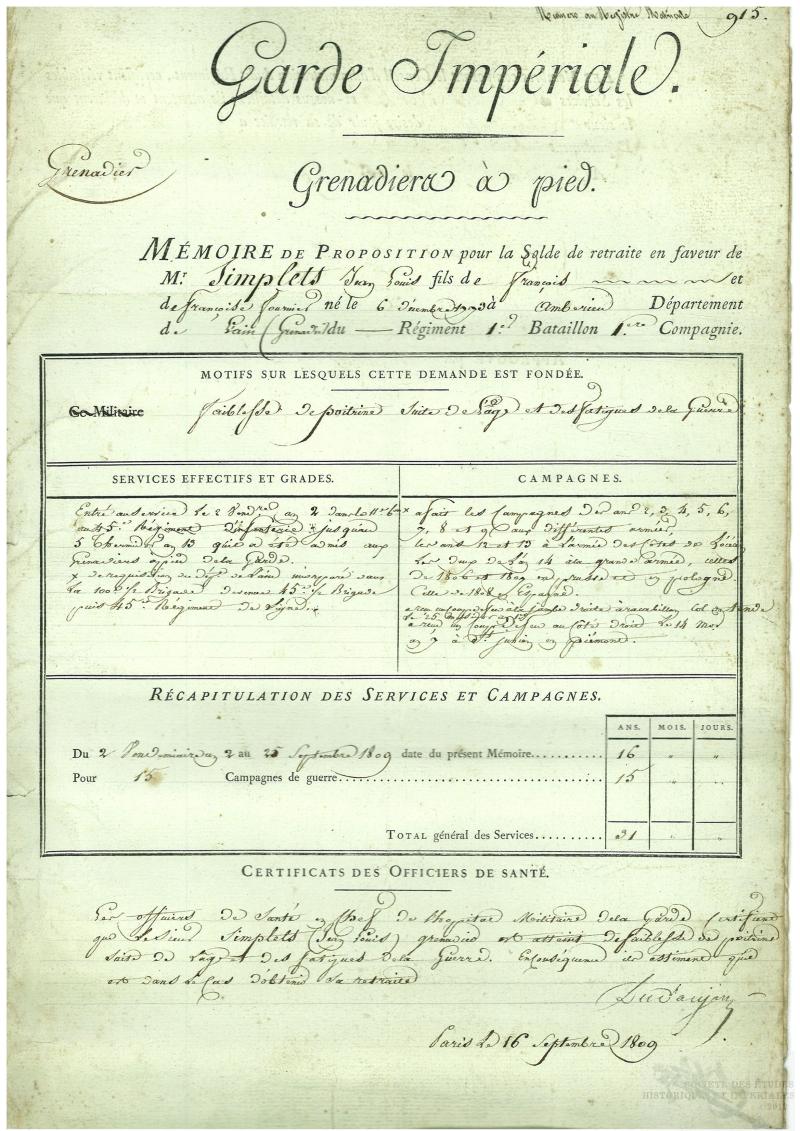 Numero au Registre Matricule 915.
Garde Impériale.
Grenadier
Grenadiers à pied.
MÉMOIRE DE PROPOSITION pour la Solde de retraite en faveur de
Mr Simplets Jean Louis fils de François et
de françoise fournier né le 6 à amberieu Département
de l'ain (Grenadier) du — Régiment 1er Bataillon 1ere Compagnie.
MOTIFS SUR LESQUELS CETTE DEMANDE EST FONDÉE.
Ce Militaire faiblesse de poitrine suite de l'âge et des fatigues de la Guerre
SERVICES EFFECTIFS ET GRADES.
Entré au service le 2 Vendre an 2 dans le 11e
au 45e Régiment d'infanterie x jusqu'au
5 Thermidor an 13 qu'il a été admis aux
Grenadiers à pied de la Garde.
x de requisition du dépt de l'ain incorporé dans
la 100e 1/2 Brigade devenue 45e 1/2 Brigade
puis 45e Régiment de Ligne x
CAMPAGNES.
a fait les Campagnes des ans 2, 3, 4, 5, 6,
7, 8 et 9 aux différentes armées,
les ans 12 et 13 à l'armée des Côtes de l'océan
Les deux de l'an 14 à la grande armée, celles
de 1806 et 1807 en prusse et en pologne.
Celle de 1808 en Espagne.
a reçu un coup de feu à la jambe droite Col de tende
le 25
a reçu un Coup de feu au Côté droit Le 14
an 9 à St en piémont.
RÉCAPITULATION DES SERVICES ET CAMPAGNES.
ANS. MOIS. JOURS.
Du 2 Vendemiaire an 2 au 25 Septembre 1809 date du présent Mémoire.......... 16 " "
Pour 15 Campagnes de guerre.......... 15 " "
TOTAL général des Services.......... 31 " "
CERTIFICATS DES OFFICIERS DE SANTÉ.
Les officiers de Santé en Chef de l'hopital Militaire de la Garde Certifient
que le sieur Simplets (Jean Louis) grenadier est atteint de faiblesse de poitrine
suite de l'age et des fatigues de la Guerre. En conséquence ils estiment que
est dans le Cas d'obtenir sa retraite
Paris Le 16 Septembre 1809
SOCIÉTÉ DES ÉTUDES
HISTORIQUES ET IMPÉRIALES